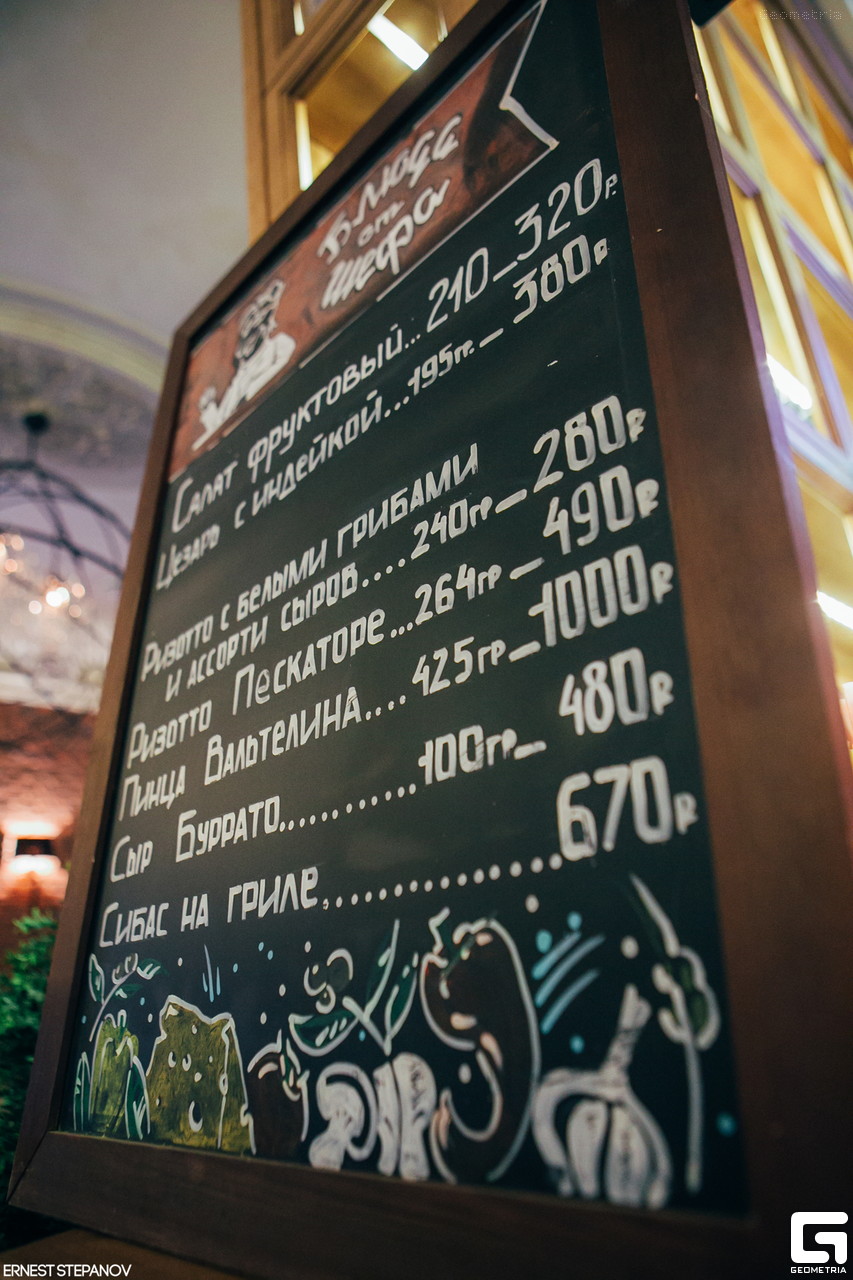 Geometria
Блюда
от
шефа
Салат фруктовый... 210_320р
Цезарь с индейкой...195гр._380р
Ризотто с белыми грибами
и ассорти сыров....240гр_280р
Ризотто Пескаторе...264гр_490р
Пинца Вальтелина....425гр_1000р
Сыр Буррато............100гр_480р
Сибас на гриле..................670р
ERNEST STEPANOV
GEOMETRIA